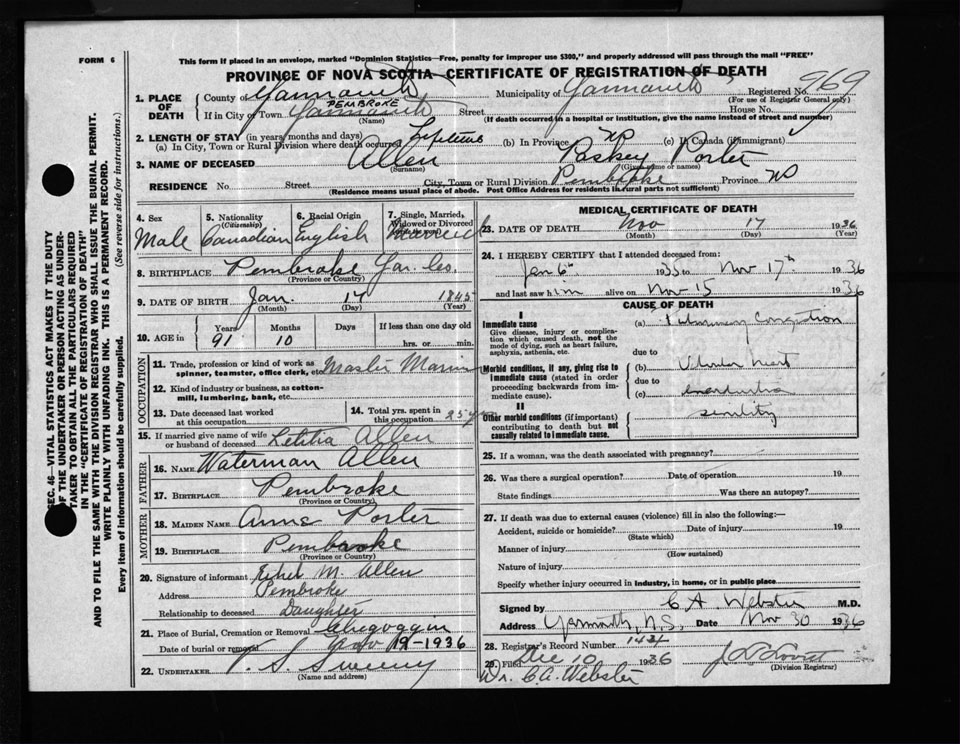 FORM 6
This form if placed in an envelope, marked "Dominion Statistics—Free, penalty for improper use $300," and properly addressed will pass through the mail "FREE"
PROVINCE OF NOVA SCOTIA—CERTIFICATE OF REGISTRATION OF DEATH
Registered No. 969
(For use of Registrar General only)
1. PLACE OF DEATH
County of Yarmouth Municipality of Yarmouth
PEMBROKE
If in City or Town Yarmouth Street House No.
(Name) (If death occurred in a hospital or institution, give the name instead of street and number)
2. LENGTH OF STAY (in years, months and days)
(a) In City, Town or Rural Division where death occurred Lifetime (b) In Province (c) In Canada (if immigrant)
3. NAME OF DECEASED Allen Porter
(Surname) (Given name or names)
RESIDENCE No. Street City, Town or Rural Division Pembroke Province NS
(Residence means usual place of abode. Post Office Address for residents in rural parts not sufficient)
4. Sex Male
5. Nationality (Citizenship) Canadian
6. Racial Origin English
7. Single, Married, Widowed or Divorced Married
8. BIRTHPLACE Pembroke Yar. Co.
(Province or Country)
9. DATE OF BIRTH Jan. 17 1845
(Month) (Day) (Year)
10. AGE in Years Months Days If less than one day old
91 10 hrs. or min.
OCCUPATION
11. Trade, profession or kind of work as spinner, teamster, office clerk, etc. Master Mariner
12. Kind of industry or business, as cotton-mill, lumbering, bank, etc.
13. Date deceased last worked at this occupation
14. Total yrs. spent in this occupation 25 y
15. If married give name of wife or husband of deceased Letitia Allen
FATHER
16. NAME Waterman Allen
17. BIRTHPLACE Pembroke
(Province or Country)
MOTHER
18. MAIDEN NAME Anne Porter
19. BIRTHPLACE Pembroke
(Province or Country)
20. Signature of informant Ethel M. Allen
Address Pembroke
Relationship to deceased Daughter
21. Place of Burial, Cremation or Removal Chegoggin
Date of burial or removal Nov 19-1936
22. UNDERTAKER V. S. Sweeny
(Name and address)
MEDICAL CERTIFICATE OF DEATH
23. DATE OF DEATH Nov 17 1936
(Month) (Day) (Year)
24. I HEREBY CERTIFY that I attended deceased from:
Jan 6th 1935 to Nov 17th 1936
and last saw him alive on Nov 15 1936
CAUSE OF DEATH
I
Immediate cause
Give disease, injury or complication which caused death, not the mode of dying, such as heart failure, asphyxia, asthenia, etc.
(a) Pulmonary Congestion
due to
Morbid conditions, if any, giving rise to immediate cause (stated in order proceeding backwards from immediate cause).
(b)
due to
(c)
II
Other morbid conditions (if important) contributing to death but not causally related to immediate cause.
senility
25. If a woman, was the death associated with pregnancy?
26. Was there a surgical operation? Date of operation 19
State findings Was there an autopsy?
27. If death was due to external causes (violence) fill in also the following:—
Accident, suicide or homicide? Date of injury 19
(State which)
Manner of injury
(How sustained)
Nature of injury
Specify whether injury occurred in industry, in home, or in public place
Signed by C A. Webster M.D.
Address Yarmouth, N.S. Date Nov 30 1936
28. Registrar's Record Number 1434
29. Filed Dec 10 1936
(Division Registrar)
Dr. C. A. Webster
SEC. 46—VITAL STATISTICS ACT MAKES IT THE DUTY
OF THE UNDERTAKER OR PERSON ACTING AS UNDERTAKER TO OBTAIN ALL THE PARTICULARS REQUIRED
IN THE "CERTIFICATE OF REGISTRATION OF DEATH"
AND TO FILE THE SAME WITH THE DIVISION REGISTRAR WHO SHALL ISSUE THE BURIAL PERMIT.
WRITE PLAINLY WITH UNFADING INK. THIS IS A PERMANENT RECORD.
Every item of information should be carefully supplied. (See reverse side for instructions.)